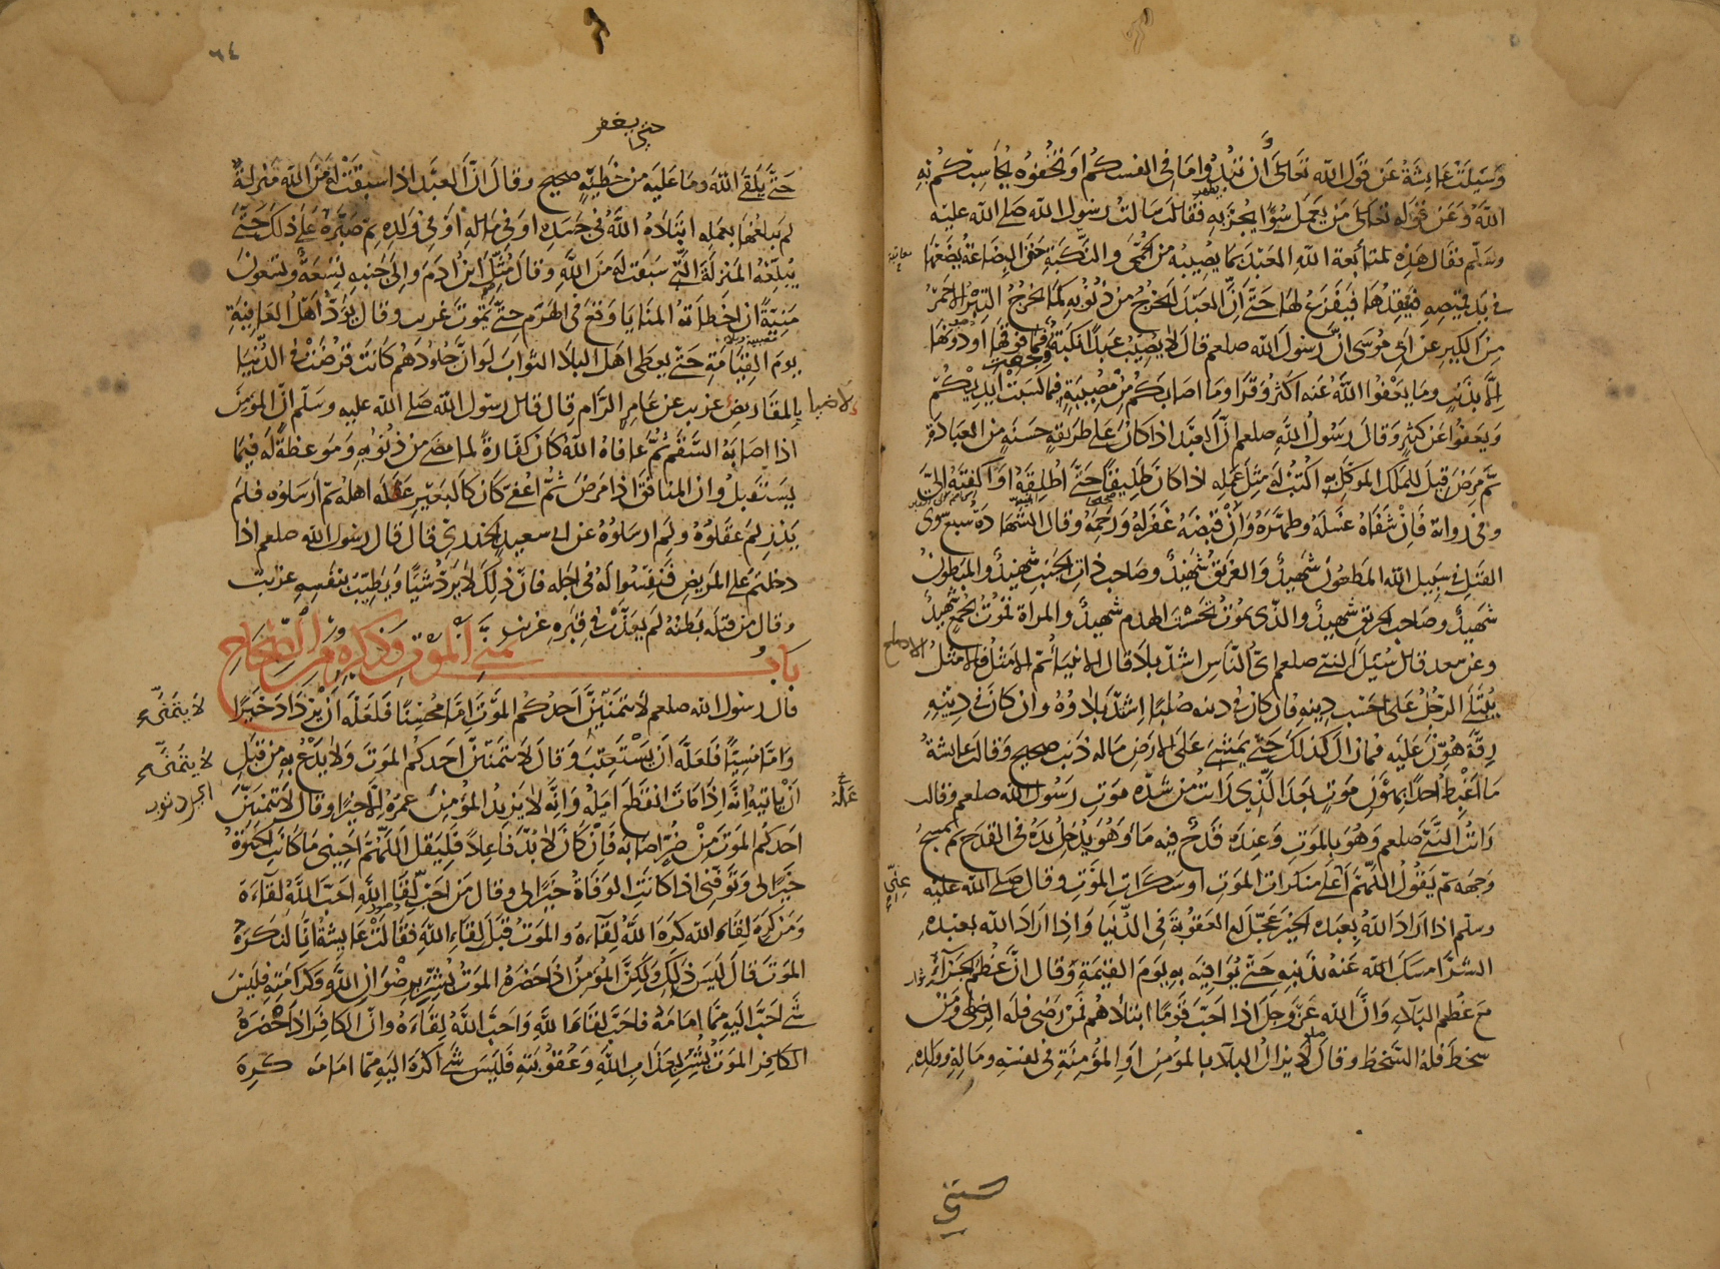 وسئلت عائشة عن قول الله تعالى ان تبدوا ما في انفسكم او تخفوه يحاسبكم به
الله وعن قوله تعالى من يعمل سوءا يجز به فقالت سالت رسول الله صلى الله عليه
وسلم فقال هذه معاتبة الله العبد بما يصيبه من الحمى والنكبة حتى البضاعة يضعها
في يد قميصه فيفقدها فيفزع لها حتى ان العبد ليخرج من ذنوبه كما يخرج التبر الاحمر
من الكير عن ابي موسى ان رسول الله صلعم قال لا يصيب عبدا نكبة فما فوقها او دونها
الا بذنب وما يعفوا الله عنه اكثر وقرا وما اصابكم من مصيبة فبما كسبت ايديكم
ويعفوا عن كثير وقال رسول الله صلعم ان العبد اذا كان على طريقة حسنة من العبادة
ثم مرض قيل للملك الموكل به اكتب له مثل عمله اذا كان طليقا حتى اطلقه او اكفته الي
وفي رواية فان شفاه غسله وطهره وان قبضه غفر له ورحمه وقال الشهادة سبع سوى
القتل في سبيل الله المطعون شهيد والغريق شهيد وصاحب ذات الجنب شهيد والمبطون
شهيد وصاحب الحريق شهيد والذي يموت تحت الهدم شهيد والمراة تموت بجمع شهيد
وعن سعد قال سئل النبي صلعم اي الناس اشد بلاء قال الانبياء ثم الامثل فالامثل
يبتلى الرجل على حسب دينه فان كان في دينه صلبا اشتد بلاؤه وان كان في دينه
رقة هون عليه فما زال كذلك حتى يمشي على الارض ماله ذنب صحيح وقالت عائشة
ما اغبط احدا بهون موت بعد الذي رايت من شدة موت رسول الله صلعم وقالت
رايت النبي صلعم وهو بالموت وعنده قدح فيه ماء وهو يدخل يده في القدح ثم يمسح
وجهه ثم يقول اللهم اعني على منكرات الموت او سكرات الموت وقال صلى الله عليه
وسلم اذا اراد الله بعبده الخير عجل له العقوبة في الدنيا واذا اراد الله بعبده
الشر امسك الله عنه بذنبه حتى يوافيه به يوم القيمة وقال ان عظم الجزاء
مع عظم البلاء وان الله عز وجل اذا احب قوما ابتلاهم فمن رضي فله الرضى ومن
سخط فله السخط وقال لا يزال البلاء بالمؤمن او المؤمنة في نفسه وماله وولده
حتى يلقى الله وما عليه من خطيئة صحيح وقال ان العبد اذا سبقت له من الله منزلة
لم يبلغها بعمله ابتلاه الله في جسده او في ماله او في ولده ثم صبره على ذلك حتى
يبلغه المنزلة التي سبقت له من الله وقال مثل ابن ادم والى جنبه تسعة وتسعون
منية ان اخطاته المنايا وقع في الهرم حتى يموت غريب وقال يود اهل العافية
يوم القيامة حتى يعطى اهل البلاء الثواب لو ان جلودهم كانت قرضت في الدنيا
بالمقاريض غريب عن عامر الرام قال قال رسول الله صلى الله عليه وسلم ان المؤمن
اذا اصابه السقم ثم عافاه الله كان كفارة لما مضى من ذنوبه وموعظة له فيما
يستقبل وان المنافق اذا مرض ثم اعفي كان كالبعير عقله اهله ثم ارسلوه فلم
يدر لم عقلوه ولم ارسلوه عن ابي سعيد الخدري قال قال رسول الله صلعم اذا
دخلتم على المريض فنفسوا له في اجله فان ذلك لا يرد شيئا ويطيب بنفسه غريب
وقال من قتله بطنه لم يعذب في قبره غريب
باب تمني الموت وذكره من الصحاح
قال رسول الله صلعم لا يتمنين احدكم الموت اما محسنا فلعله ان يزداد خيرا
واما مسيئا فلعله ان يستعتب وقال لا يتمنين احدكم الموت ولا يدع به من قبل
ان ياتيه انه اذا مات انقطع امله وانه لا يزيد المؤمن عمره الا خيرا وقال لا يتمنين
احدكم الموت من ضر اصابه فان كان لا بد فاعلا فليقل اللهم احيني ما كانت الحيوة
خيرا لي وتوفني اذا كانت الوفاة خيرا لي وقال من احب لقاء الله احب الله لقاءه
ومن كره لقاء الله كره الله لقاءه والموت قبل لقاء الله فقالت عايشة انا لنكره
الموت قال ليس ذلك ولكن المؤمن اذا حضره الموت بشر برضوان الله وكرامته فليس
شيء احب اليه مما امامه فاحب لقاء الله واحب الله لقاءه وان الكافر اذا حضره
الكافر الموت بشر بعذاب الله وعقوبته فليس شيء اكره اليه مما امامه كره